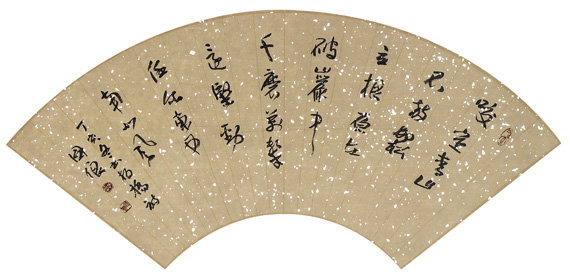 咬定青山
不放鬆
立根原在
破巖中
千磨萬擊
還堅勁
任尔東西
南北風
丁亥冬書板橋詩